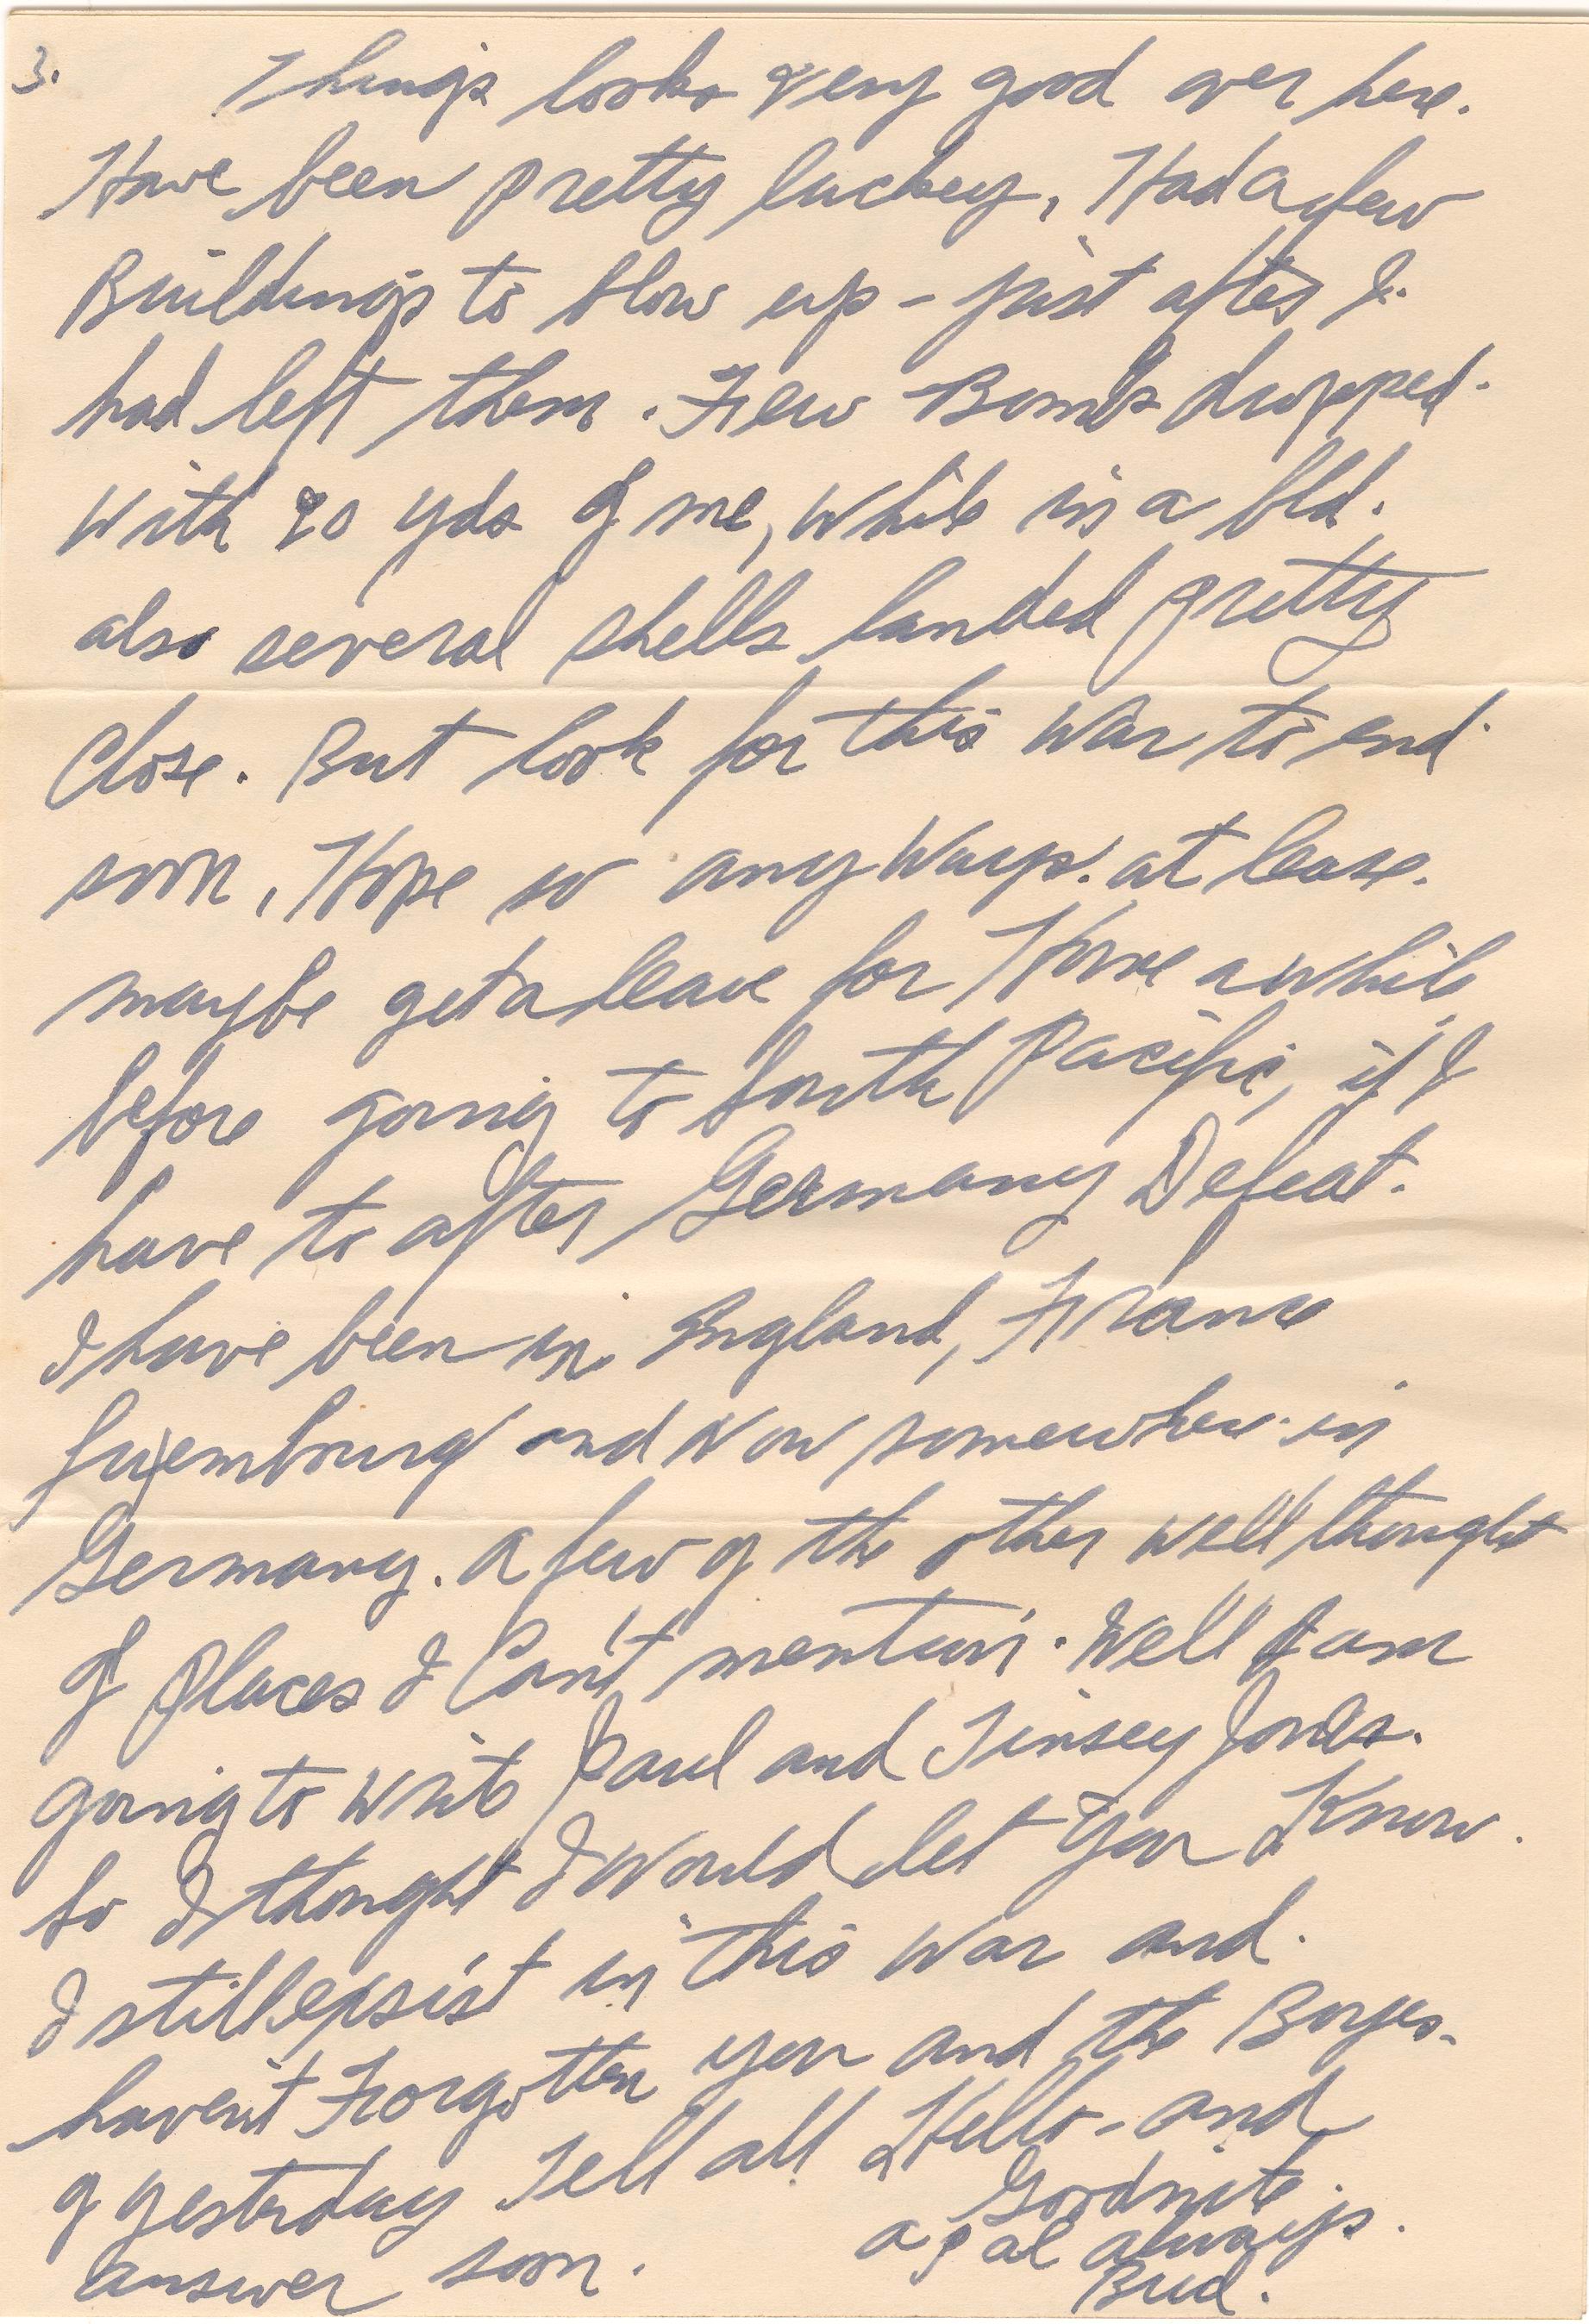 3.
Things looks very good over here.
Have been pretty luckey, Had a few
Buildings to blow up - just after I
had left them. Few Bombs dropped
with 20 yds of me, while in a bld.
also several shells landed pretty
close. But look for this war to end
soon, Hope so any ways. at lease.
maybe get a leave for Home a while
before going to South Pacific, if I
have to after Germany Defeat.
I have been in England, France
Luxembourg and Now somewhere in
Germany. a few of the other well thought
of places I Can't mention. Well I am
going to write Paul and Tinsey Jones.
So I thought I would let you Know.
I still exsist in this war and
haven't Forgotten you and the Boyes.
of yesterday Tell all Hello - and
answer soon. Goodnite
a pal always.
Bud.